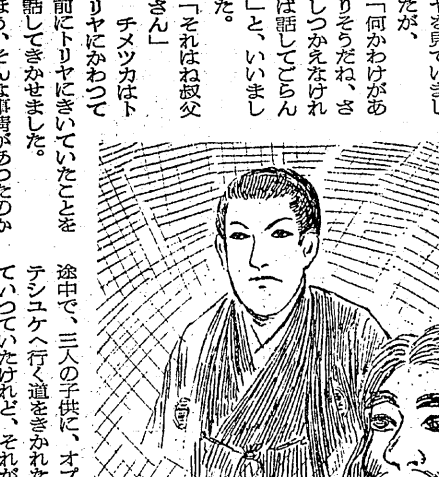 ヤを見ていまし
たが、
「何かわけがあ
りそうだね、さ
しつかえなけれ
ば話してごらん
」と、いいまし
た。
「それはね叔父
さん」
チメツカはト
リヤにかわつて
前にトリヤにきいていたことを
話してきかせました。
ほう、そんな事情があつたのか
途中で、三人の子供に、オプ
テシユケへ行く道をきかれた
ていつていたけれど、それが